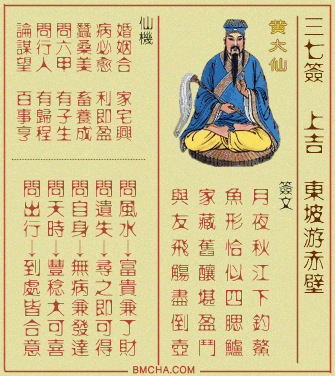 三七簽　上吉　東坡游赤壁
黃大仙
簽文
月夜秋江下釣鰲
魚形恰似四腮鱸
家藏舊釀堪盈鬥
與友飛觴盡倒壺
仙機
婚姻合　家宅興
病必愈　利即盈
蠶桑美　畜養成
問六甲　有子生
問行人　有歸程
論謀望　百事亨
問風水→富貴兼丁財
問遺失→尋之即可得
問自身→無病兼發達
問天時→豐稔大可喜
問出行→到處皆合意
BMCHA.COM